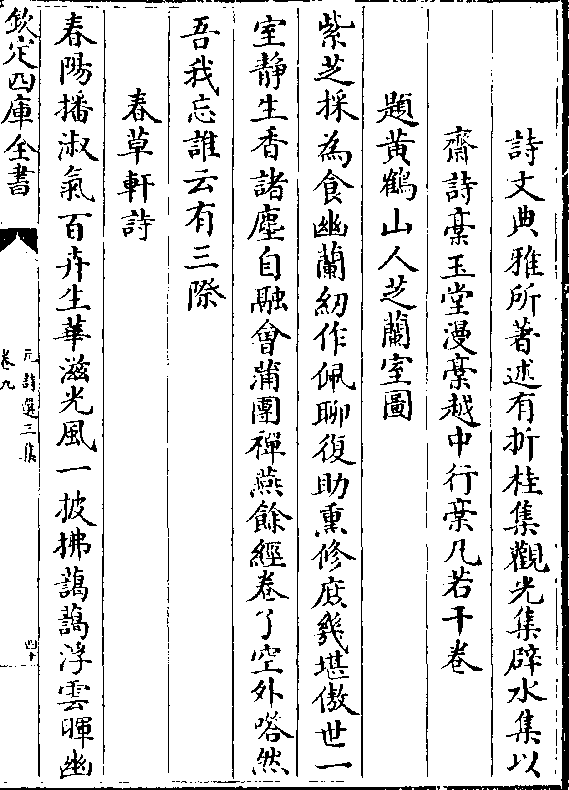 詩文典雅所著述有折桂集觀光集辟水集以
齋詩稾玉堂漫稾越中行稾凡若干卷
題黄鶴山人芝蘭室圖
紫芝採為食幽蘭紉作佩聊復助熏修庶幾堪傲世一
室靜生香諸塵自融會蒲團禪燕餘經卷了空外嗒然
吾我忘誰云有三際
春草軒詩
春陽播淑氣百卉生華滋光風一披拂藹藹浮雲暉幽
欽定四庫全書
元詩選三集
卷九
四十